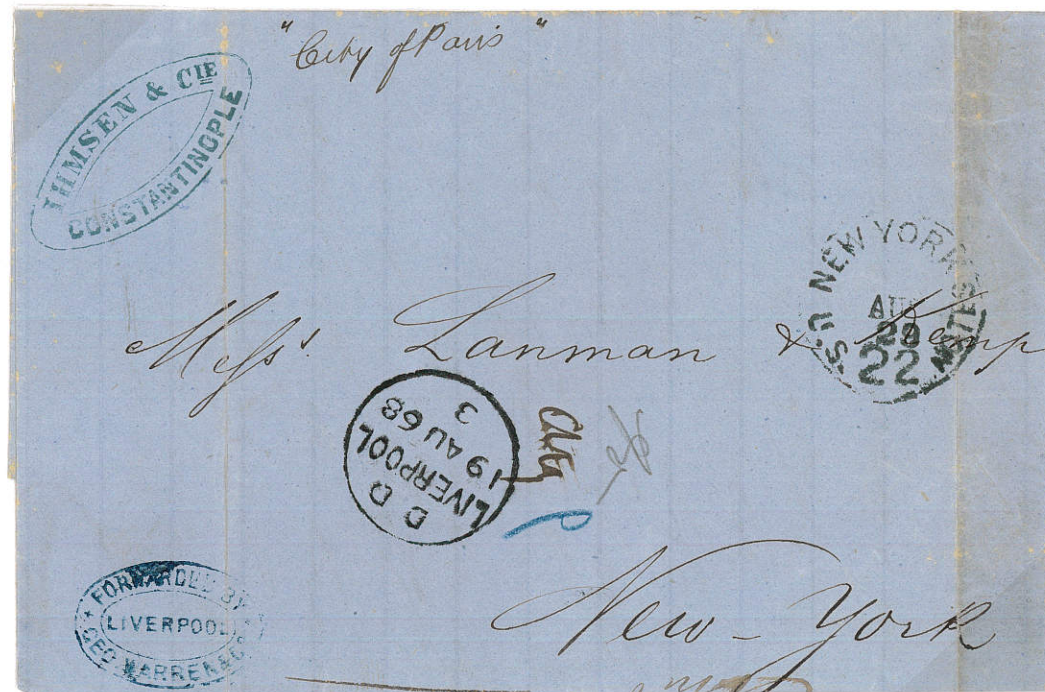 "City of Paris"
IHMSEN & CIE
CONSTANTINOPLE
NEW YORK
AUG
22
U.S. NOTES
Mess.rs Lanman & Kemp
D D
LIVERPOOL
19 AU 68
3
City
New-York
FORWARDED BY
LIVERPOOL
GEO. WARREN & Co